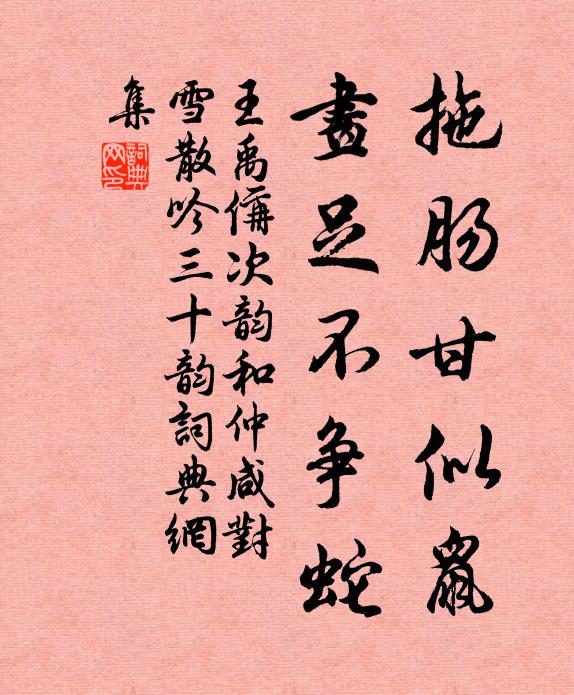 拖肠甘似鼠
畫足不争蛇
王禹偁次韵和仲咸對
雪散吟三十韵詞典網
集
詞典网印